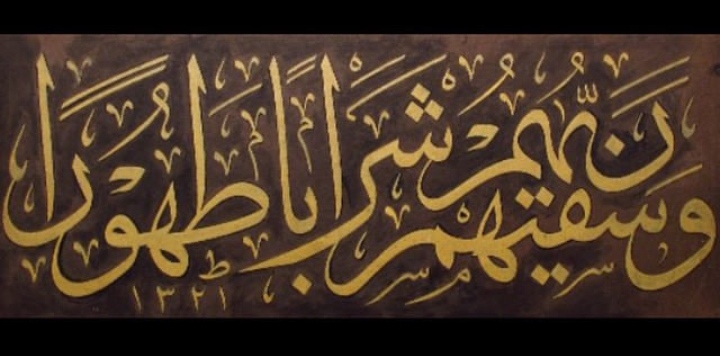 وسقيهم ربهم شرابا طهورا
١٣٢١